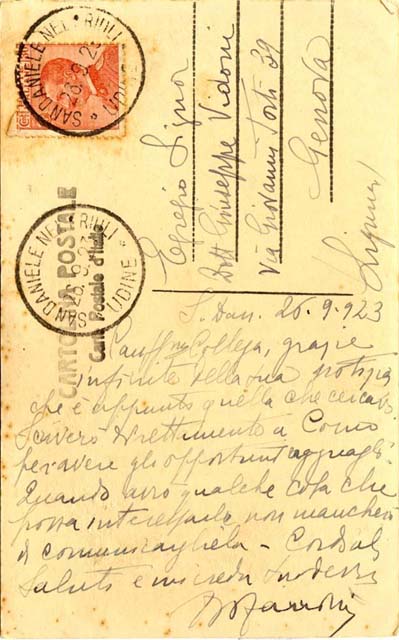 SAN DANIELE NEL FRIULI
26.9.23
* UDINE *
CARTOLINA POSTALE
Carte Postale d'Italie
SAN DANIELE NEL FRIULI
26.9.23
* UDINE *
Egregio Signor
Dott Giuseppe Vidoni
Via Giovanni Torti 39
Genova
(Liguria)
S. Dan. 26.9.923
Collega, grazie
infinite della sua notizia
che è appunto quella che cercavo
Scriverò direttamente a Como
per avere gli opportuni ragguagli.
Quando avrò qualche cosa che
possa interessarle non mancherò
di comunicargliela - Cordiali
Saluti e mi creda